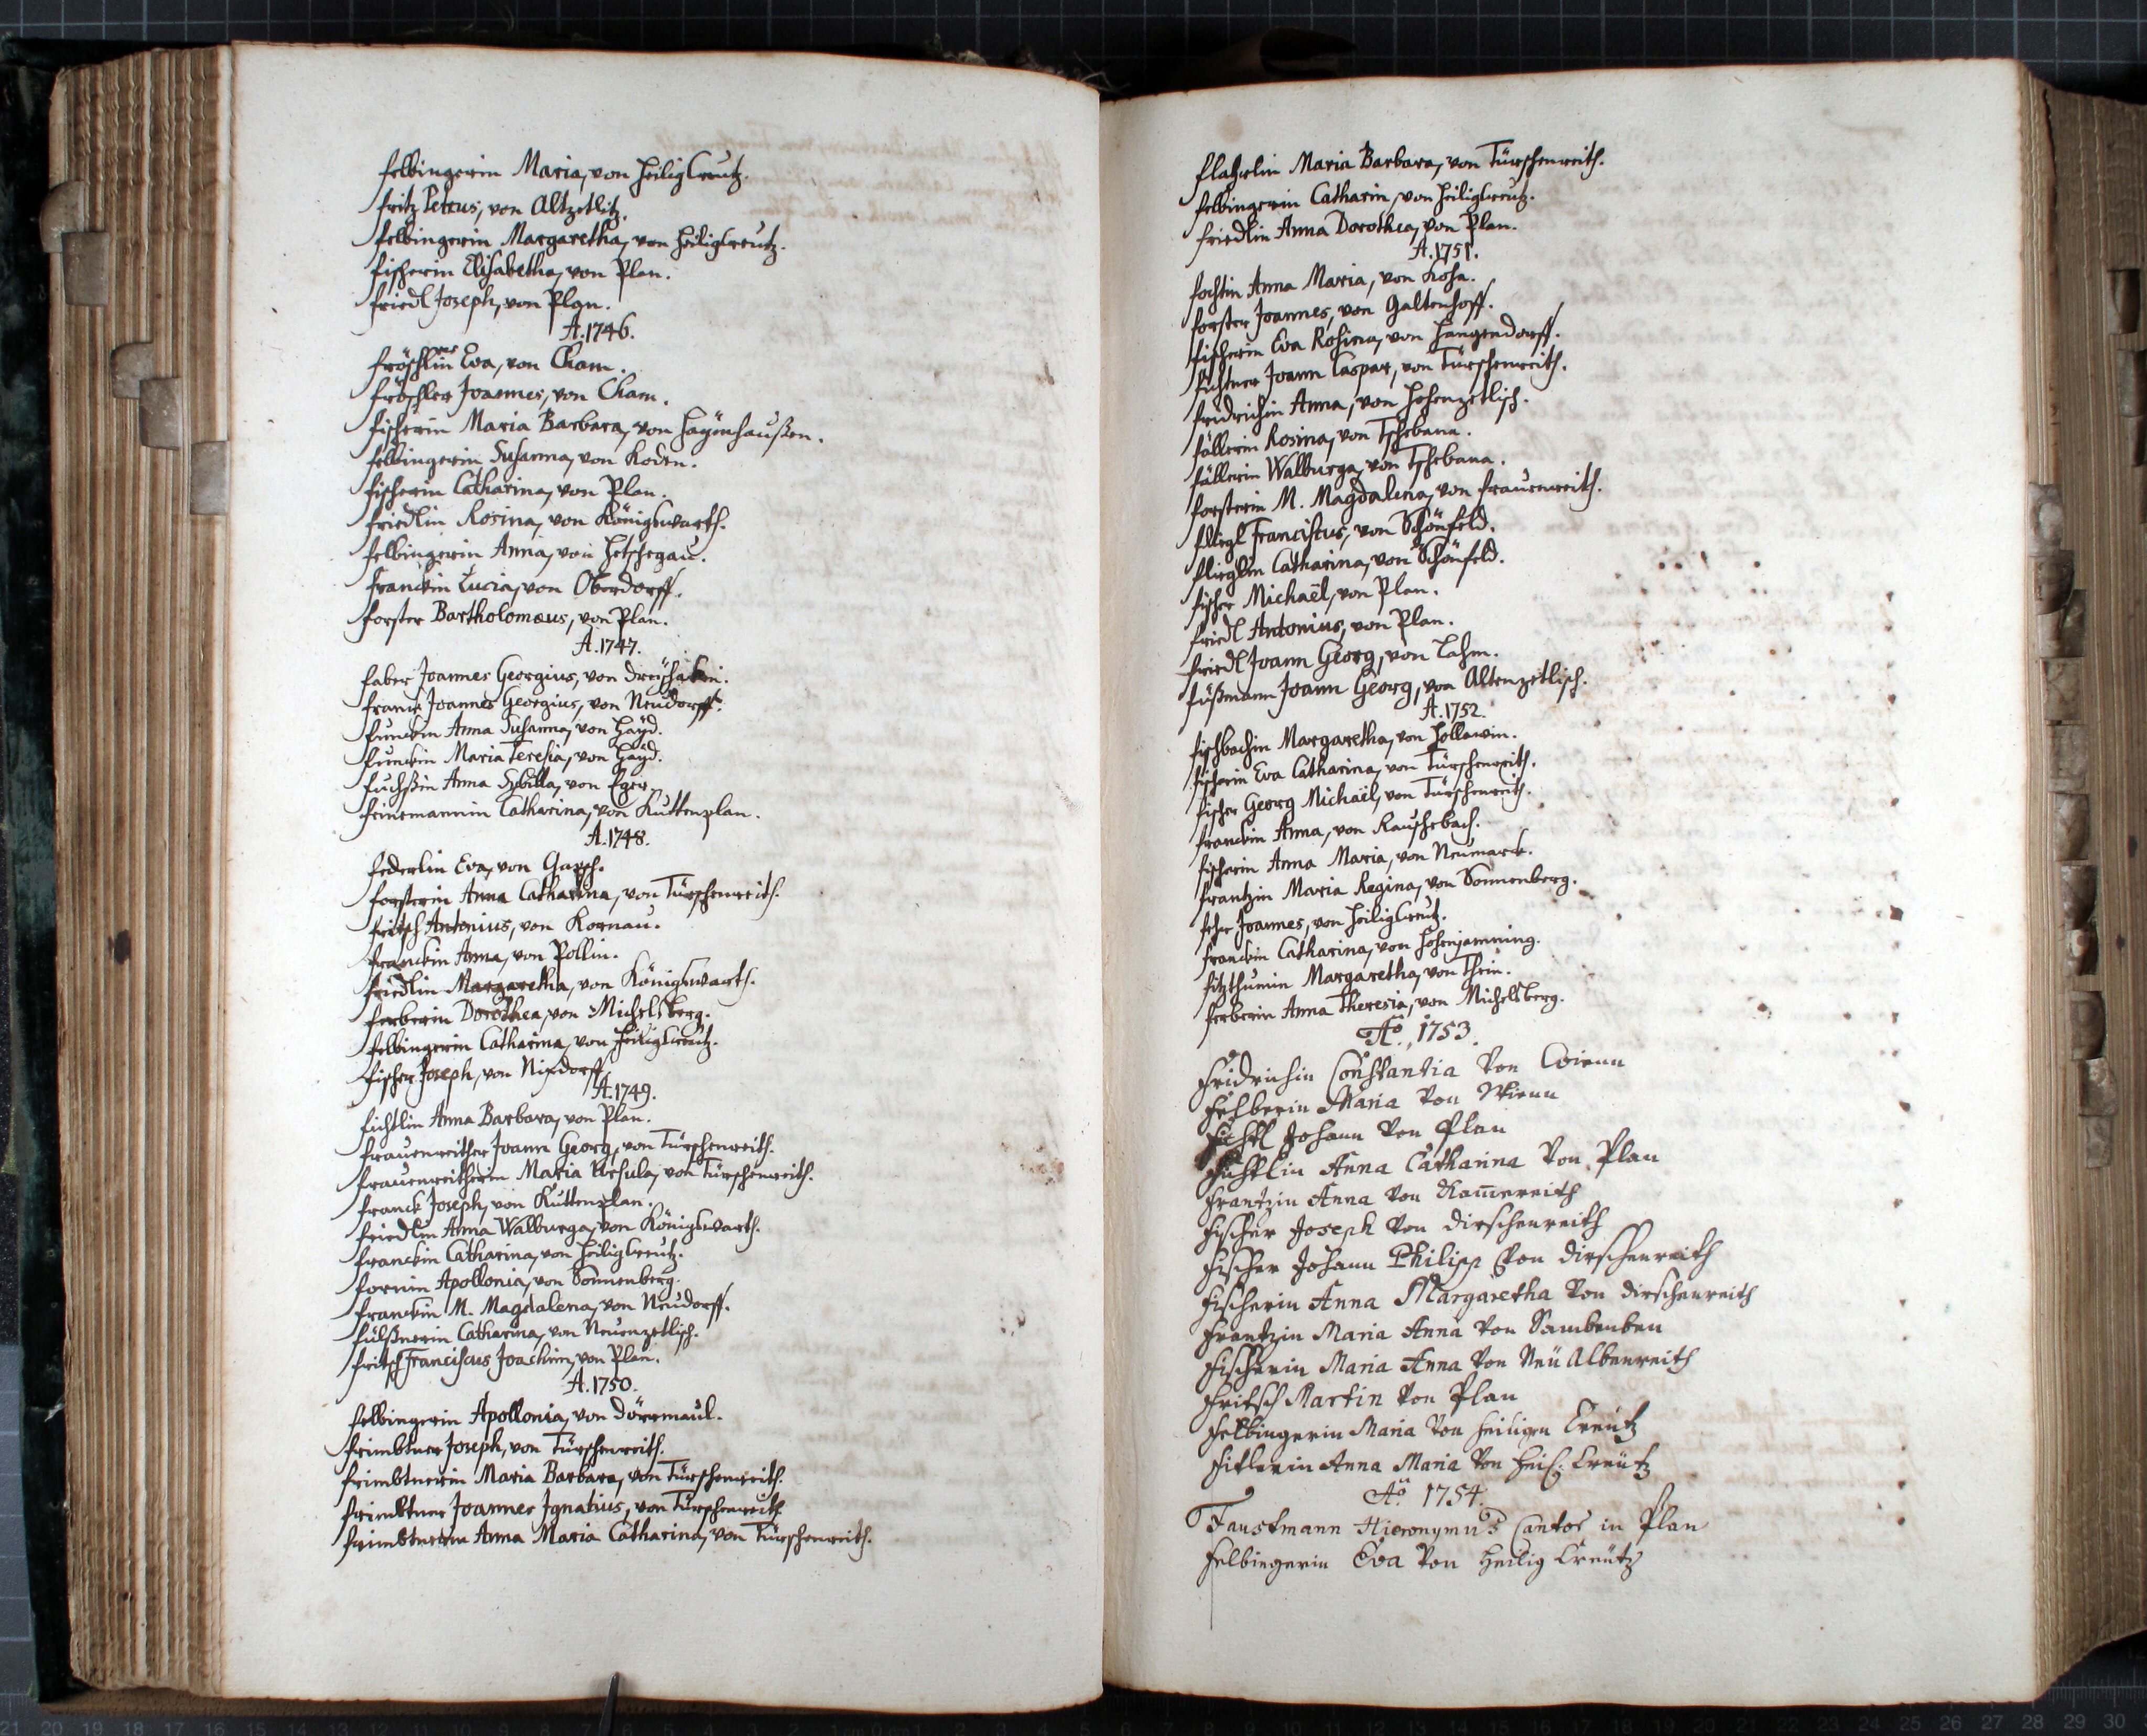 Felbingerin Maria, von Heilig Creutz.
Fritz Petrus, von Altzetlitz.
Felbingerin Margaretha, von Heiligcreutz.
Fischerin Elisabetha, von Plan.
Friedl Joseph, von Plan.
A. 1746.
Fröschlin Eva, von Cham.
Fröschler Joannes, von Cham.
Fischerin Maria Barbara, von Hayenhaußen.
Felbingerin Susanna, von Koden.
Fischerin Catharina, von Plan.
Friedlin Rosina, von Königswarth.
Felbingerin Anna, von Hetschegau.
Franckin Lucia, von Oberdorff.
Forster Bartholomæus, von Plan.
A. 1747.
Faber Joannes Georgius, von Dreyhacken.
Franck Joannes Georgius, von Neudorff.
Funckin Anna Susanna, von Hayd.
Funckin Maria Teresia, von Hayd.
Fuchßin Anna Sybilla, von Eger.
Feinemannin Catharina, von Kuttenplan.
A. 1748.
Federlin Eva, von
Forsterin Anna Catharina, von Türschenreith.
Fritsch Antonius, von Kornau.
Franckin Anna, von Pollin.
Friedlin Margaretha, von Königswarth.
Ferberin Dorothea, von Michelsberg.
Felbingerin Catharina, von Heiligcreutz.
Fischer Joseph, von Nixdorff.
A. 1749.
Fichtlin Anna Barbara, von Plan.
Frauenreither Joann Georg, von Türschenreith.
Frauenreitherin Maria Ursula, von Türschenreith.
Franck Joseph, von Kuttenplan.
Friedlin Anna Walburga, von Königswarth.
Franckin Catharina, von Heilig Creutz.
Fornin Apollonia, von Sonnenberg.
Franckin M. Magdalena, von Neudorff.
Fülßnerin Catharina, von Neuenzetlisch.
Fritsch Franciscus Joachim, von Plan.
A. 1750.
Felbingerin Apollonia, von Dörrmaul.
Frimbtner Joseph, von Türschenreith.
Frimbtnerin Maria Barbara, von Türschenreith.
Frimbtner Joannes Ignatius, von Türschenreith.
Frimbtnerin Anna Maria Catharina, von Türschenreith.
Maria Barbara, von Türschenreith.
Felbingerin Catharin, von Heiligcreutz.
Friedlin Anna Dorothea, von Plan.
A. 1751.
Fochtin Anna Maria, von Koha.
Forster Joannes, von Galtenhoff.
Fischerin Eva Rosina, von Hangendorff.
Fichtner Joann Caspar, von Türschenreith.
Fridrichin Anna, von Hohenzetlisch.
Fällerin Rosina, von Tschebana.
Fällerin Walburga, von Tschebana.
Forsterin M. Magdalena, von Frauenreith.
Fliegl Franciscus, von Schönfeld.
Flieglin Catharina, von Schönfeld.
Fischer Michaël, von Plan.
Friedl Antonius, von Plan.
Friedl Joann Georg, von Lahm.
Füßmann Joann Georg, von Altenzetlisch.
A. 1752.
Fischbachin Margaretha, von Hollawin.
Fischerin Eva Catharina, von Türschenreith.
Fischer Georg Michaël, von Türschenreith.
Franckin Anna, von Rauschebach.
Fischerin Anna Maria, von Neumarck.
Frantzin Maria Regina, von Sonnenberg.
Feher Joannes, von Heilig Creutz.
Franckin Catharina, von Hohenjamning.
Fitzthumin Margaretha, von Thein.
Ferberin Anna Theresia, von Michelsberg.
Aô. 1753.
Fridrichin Constantia von Wienn
Fehberin Maria von Wienn
Fichtl Johann von Plan
Fichtlin Anna Catharina von Plan
Frantzin Anna von Ramereith
Fischer Joseph von Dirschenreith
Fischer Johann Philipp von Dirschenreith
Fischerin Anna Margaretha von Dirschenreith
Frantzin Maria Anna von Sambenben
Fischerin Maria Anna von Neü Albenreith
Fritsch Martin von Plan
Felbingerin Maria von Heiligen Creütz
Fitlerin Anna Maria von Heil: Creütz
Aô 1754.
Faustmann Hieronymus Cantor in Plan
Felbingerin Eva von Heilig Creütz